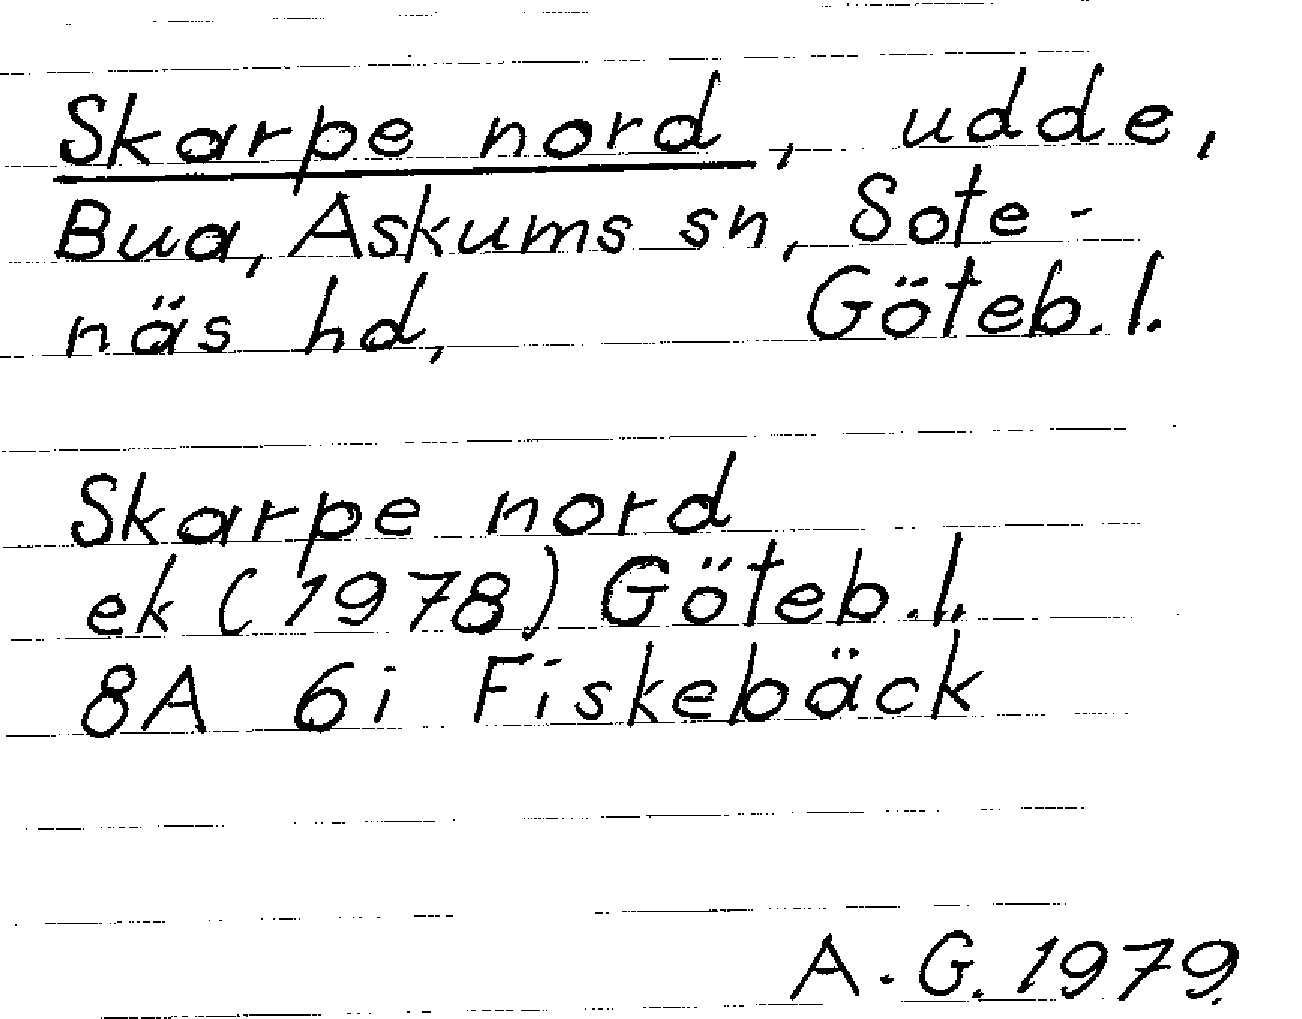 Skarpe nord, udde,
Bua, Askums sn, Sote-
näs hd, Göteb. l.
Skarpe nord
ek (1978) Göteb. l.
8A 6i Fiskebäck
A. G. 1979.